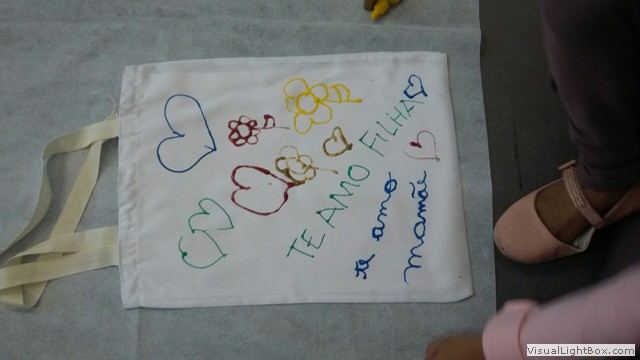 TE AMO FILHA
te amo
mamãe
VisualLightBox.com